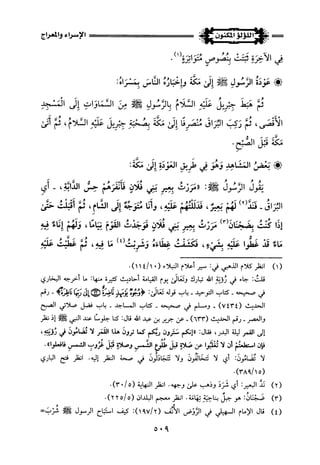 الإسراء والمعراج
اللؤلؤ المكنون
في الآخِرَةِ ثَبَتَتْ بِنُصُوصٍ مُتَوَاتِرَةٍ(١).
عَوْدَةُ الرَّسُولِ ﷺ إِلَى مَكَّةَ وَإِخْبَارُهُ النَّاسَ بِمَسْرَاهُ:
ثُمَّ هَبَطَ جِبْرِيلُ عَلَيْهِ السَّلَامُ بِالرَّسُولِ ﷺ مِنَ السَّمَاوَاتِ إِلَى الْمَسْجِدِ
الْأَقْصَى، ثُمَّ رَكِبَ الْبُرَاقَ مُنْصَرِفًا إِلَى مَكَّةَ بِصُحْبَةِ جِبْرِيلَ عَلَيْهِ السَّلَامُ، ثُمَّ أَتَى
مَكَّةَ قَبْلَ الصُّبْحِ.
بَعْضُ الْمَشَاهِدِ وَهُوَ فِي طَرِيقِ الْعَوْدَةِ إِلَى مَكَّةَ:
يَقُولُ الرَّسُولُ ﷺ: «مَرَرْتُ بِعِيرِ بَنِي فُلَانٍ فَأَنْفَرَهُمْ حِسُّ الدَّابَّةِ، ـ أَيِ
الْبُرَاقِ ـ فَنَدَّ(٢) لَهُمْ بَعِيرٌ، فَدَلَلْتُهُمْ عَلَيْهِ، وَأَنَا مُتَوَجِّهٌ إِلَى الشَّامِ، ثُمَّ أَقْبَلْتُ حَتَّى
إِذَا كُنْتُ بِضَجْنَانَ(٣) مَرَرْتُ بِعِيرِ بَنِي فُلَانٍ فَوَجَدْتُ الْقَوْمَ نِيَامًا، وَلَهُمْ إِنَاءٌ فِيهِ
مَاءٌ قَدْ غَطَّوْا عَلَيْهِ بِشَيْءٍ، فَكَشَفْتُ غِطَاءَهُ وَشَرِبْتُ(٤) مَا فِيهِ، ثُمَّ غَطَّيْتُ عَلَيْهِ
(١) انظر كلام الذهبي في: سير أعلام النبلاء (١٠/١١٤).
قلتُ: جاء في رُؤيَةِ الله تبارك وتَعَالَى يوم القيامة أحاديث كثيرة منها: ما أخرجه البخاري
في صحيحه ـ كتاب التوحيد ـ باب قوله تعالى: ﴿وُجُوهٌ يَوْمَئِذٍ نَاضِرَةٌ إِلَى رَبِّهَا نَاظِرَةٌ﴾ ـ رقم
الحديث (٧٤٣٤) ـ ومسلم في صحيحه ـ كتاب المساجد ـ باب فضل صلاتي الصبح
والعصر ـ رقم الحديث (٦٣٣) ـ عن جرير بن عبد الله قال: كنا جلوسًا عند النبي ﷺ إذ نظر
إلى القمر ليلة البدر، فقال: «إنكم ستَرون ربَّكم كما ترونَ هذا القَمَرَ لا تُضَامُون في رؤيته،
فإن استطعتُمْ أن لا تُغْلَبُوا عن صلاةٍ قبلَ طُلوعِ الشَّمسِ وصلاةٍ قبلَ غُروبِ الشمسِ فافعلوا».
لا تُضَامُّونَ: أي لا تَتَخَالفُونَ ولا تَتَجَادَلُونَ في صحة النظر إليه. انظر فتح الباري
(١٥/٣٨٩).
(٢) نَدَّ البعيرُ: أي شَرَدَ وذهب على وجهه. انظر النهاية (٥/٣٠).
(٣) ضَجْنَانُ: هو جبلٌ بناحية تِهَامَة. انظر معجم البلدان (٥/٢٢٥).
(٤) قال الإمام السهيلي في الرَّوْض الأُنُف (٢/١٩٧): كيف استَبَاح الرسول ﷺ شُرْبَ=
٥٠٩